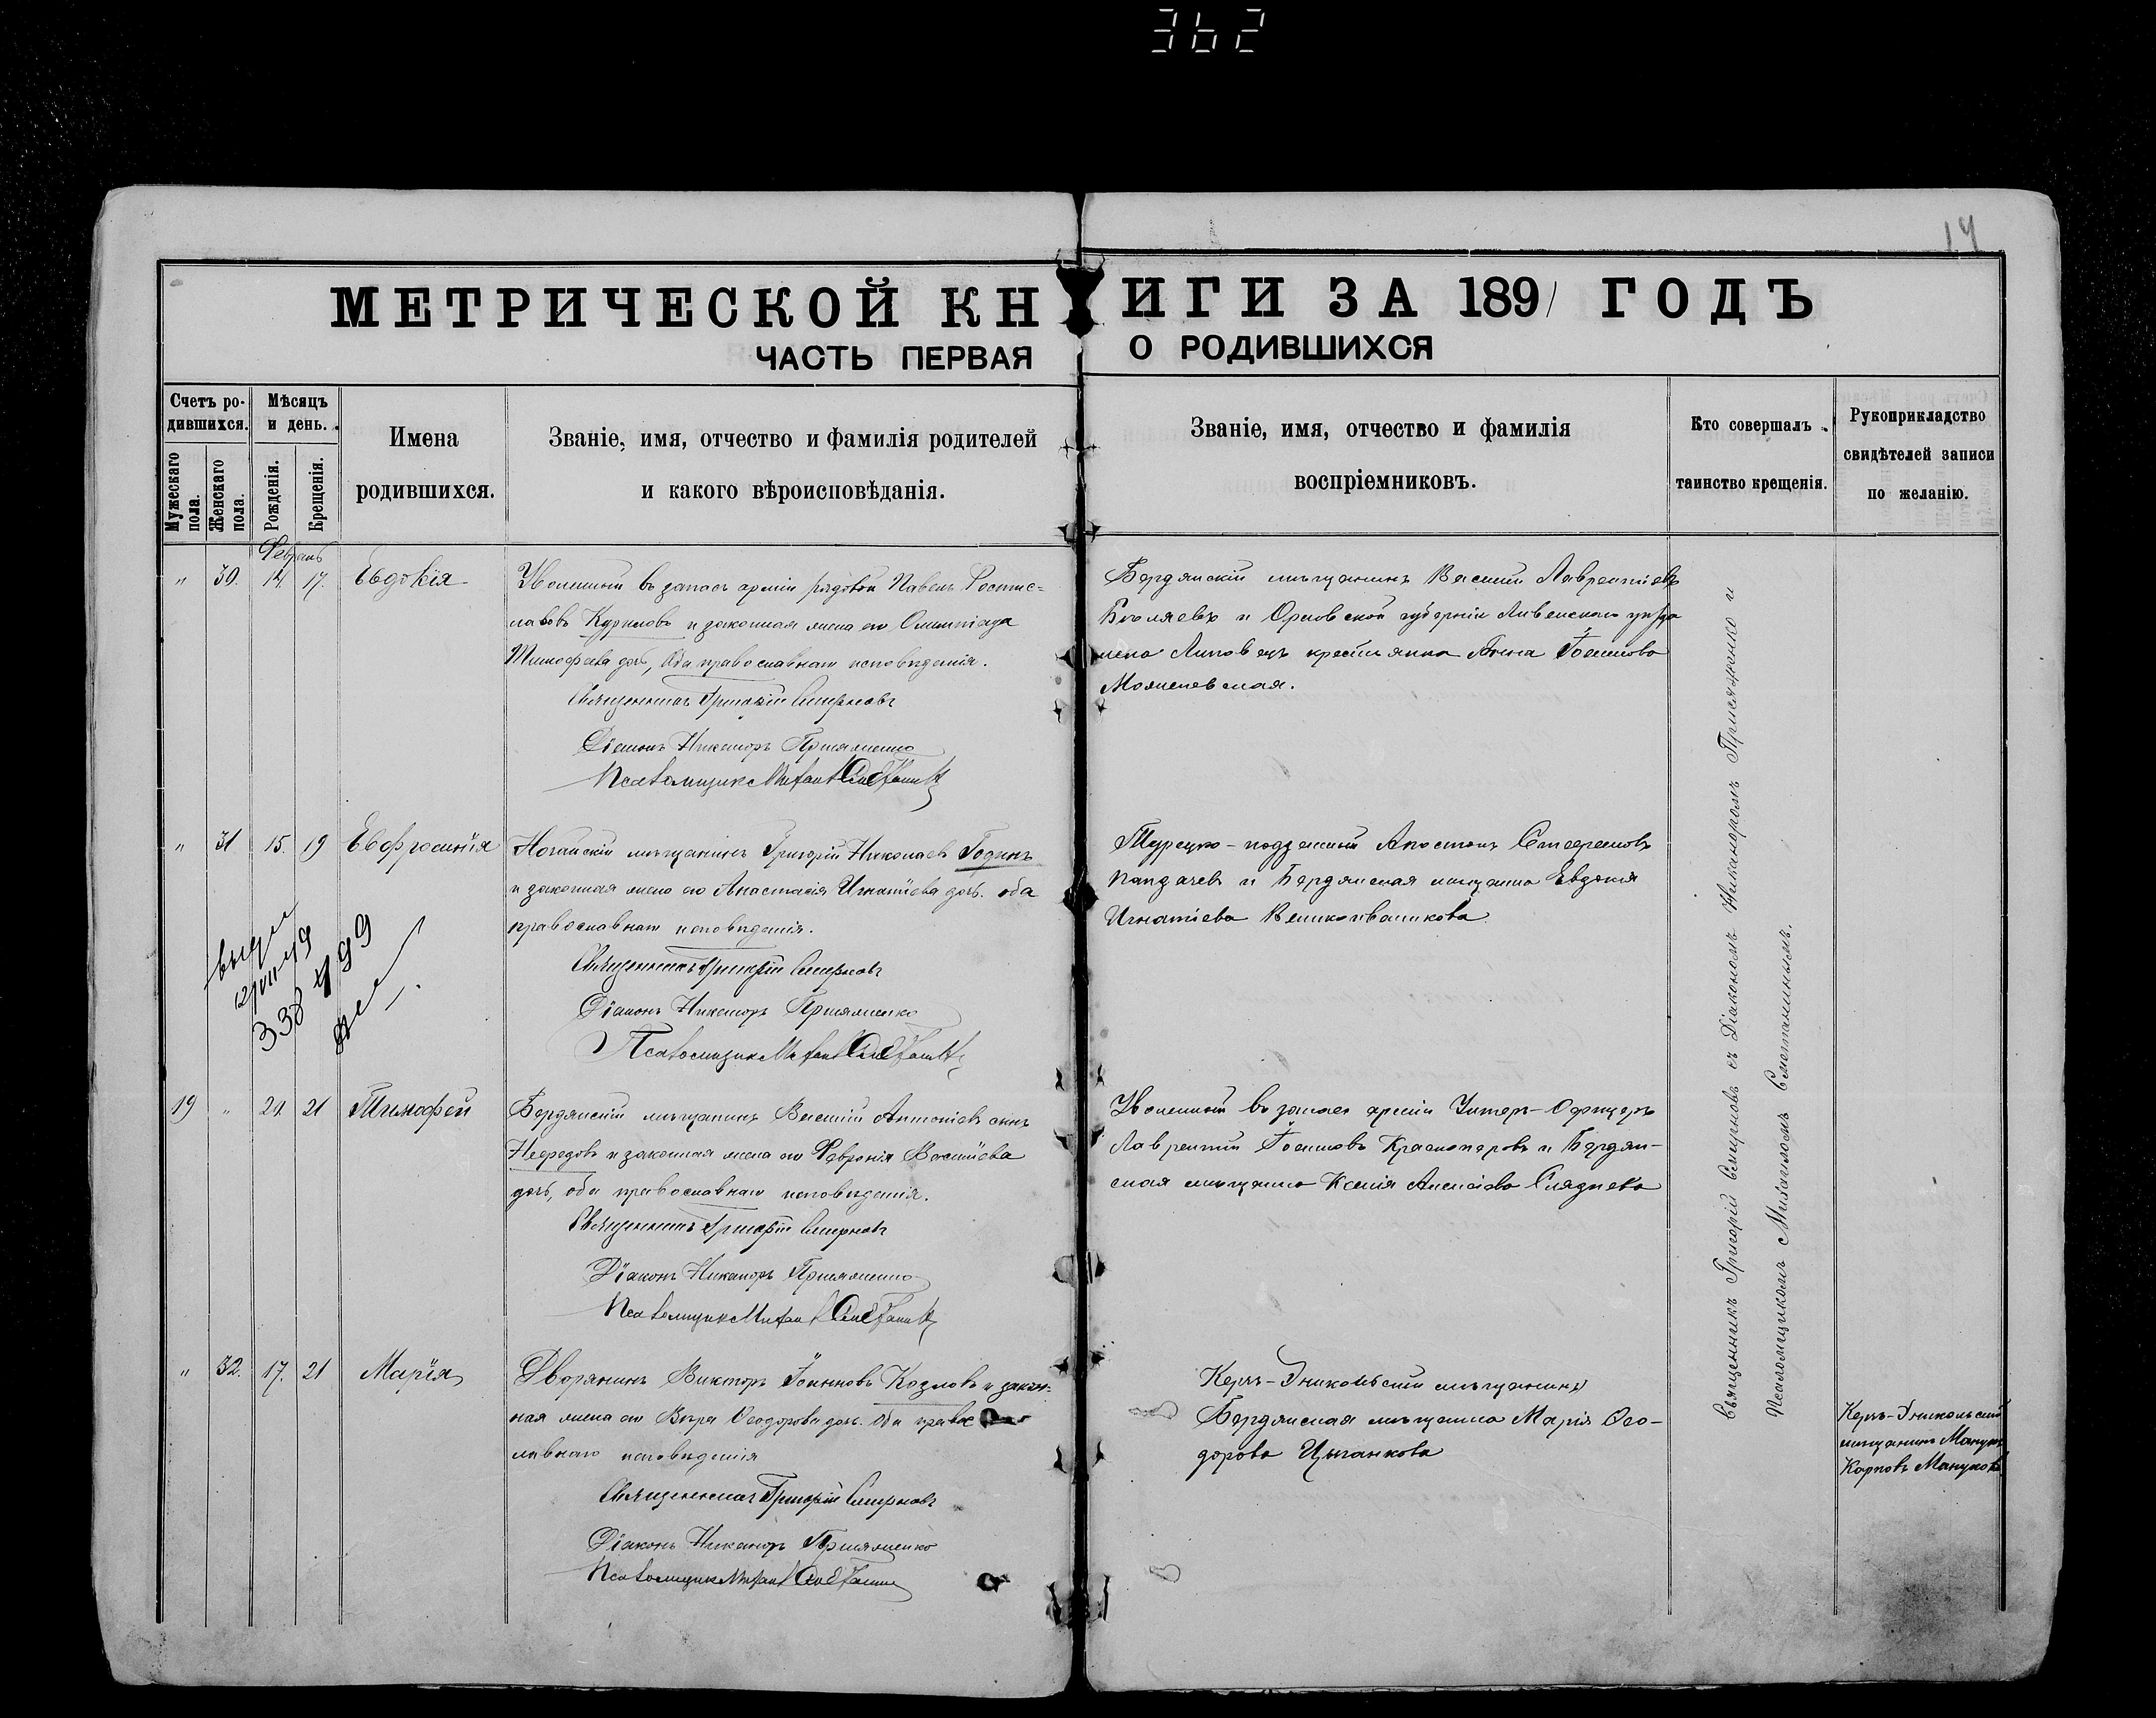 362
14
МЕТРИЧЕСКОЙ КНИГИ ЗА 1891 ГОДЪ
ЧАСТЬ ПЕРВАЯ О РОДИВШИХСЯ
Счетъ родившихся.
Мужескаго пола.
Женскаго пола.
Мѣсяцъ и день.
Рожденія.
Крещенія.
Имена
родившихся.
Званіе, имя, отчество и фамилія родителей
и какого вѣроисповѣданія.
Званіе, имя, отчество и фамилія
воспріемниковъ.
Кто совершалъ
таинство крещенія.
Рукоприкладство
свидѣтелей записи
по желанію.
Февраль
" 30. 14 17. Евдокія
Уволенный въ запасъ арміи рядовой Павелъ Ростис=
лавовъ Куриловъ и законная жена его Олимпіада
Тимофеева дочь, Оба православнаго исповѣданія.
Священникъ Григорій Смирновъ
Діаконъ Никаноръ
Псаломщикъ Михаилъ
Бердянскій мѣщанинъ Василій Лаврентіевъ
и Орловской губерніи Ливенскаго уѣзда
села Липовецъ крестьянка Анна Іоаннова
" 31 15. 19 Евфросинія
Ногайскій мѣщанинъ Григорій Николаевъ Годинъ
и законная жена его Анастасія Игнатіева дочь. оба
православнаго исповѣданія.
Священникъ Григорій Смирновъ
Діаконъ Никаноръ
Псаломщикъ Михаилъ
Турецко-подданный Апостолъ
и Бердянская мѣщанка Евдокія
Игнатіева
338
19 " 21. 21 Тимофей
Бердянскій мѣщанинъ Василій Антоніевъ сынъ
и законная жена его Февронія Васильева
дочь, оба православнаго исповѣданія.
Священникъ Григорій Смирновъ
Діаконъ Никаноръ
Псаломщикъ Михаилъ
Уволенный въ запасъ арміи Унтеръ-Офицеръ
Лаврентій Іоанновъ Красноперовъ и Бердян-
ская мѣщанка Ксенія
" 32. 17. 21 Марія
Дворянинъ Викторъ Іоанновъ Козловъ и закон-
ная жена его Вѣра Ѳеодорова дочь. Оба правос
лавнаго исповѣданія
Священникъ Григорій Смирновъ
Діаконъ Никаноръ
Псаломщикъ Михаилъ
Керчь-Эникольскій мѣщанинъ
Бердянская мѣщанка Марія Ѳео-
дорова Цыганкова
Священникъ Григорій Смирновъ съ Діакономъ Никаноромъ и
Псаломщикомъ Михаиломъ
Керчь-Эникольскій
мѣщанинъ
Карповъ